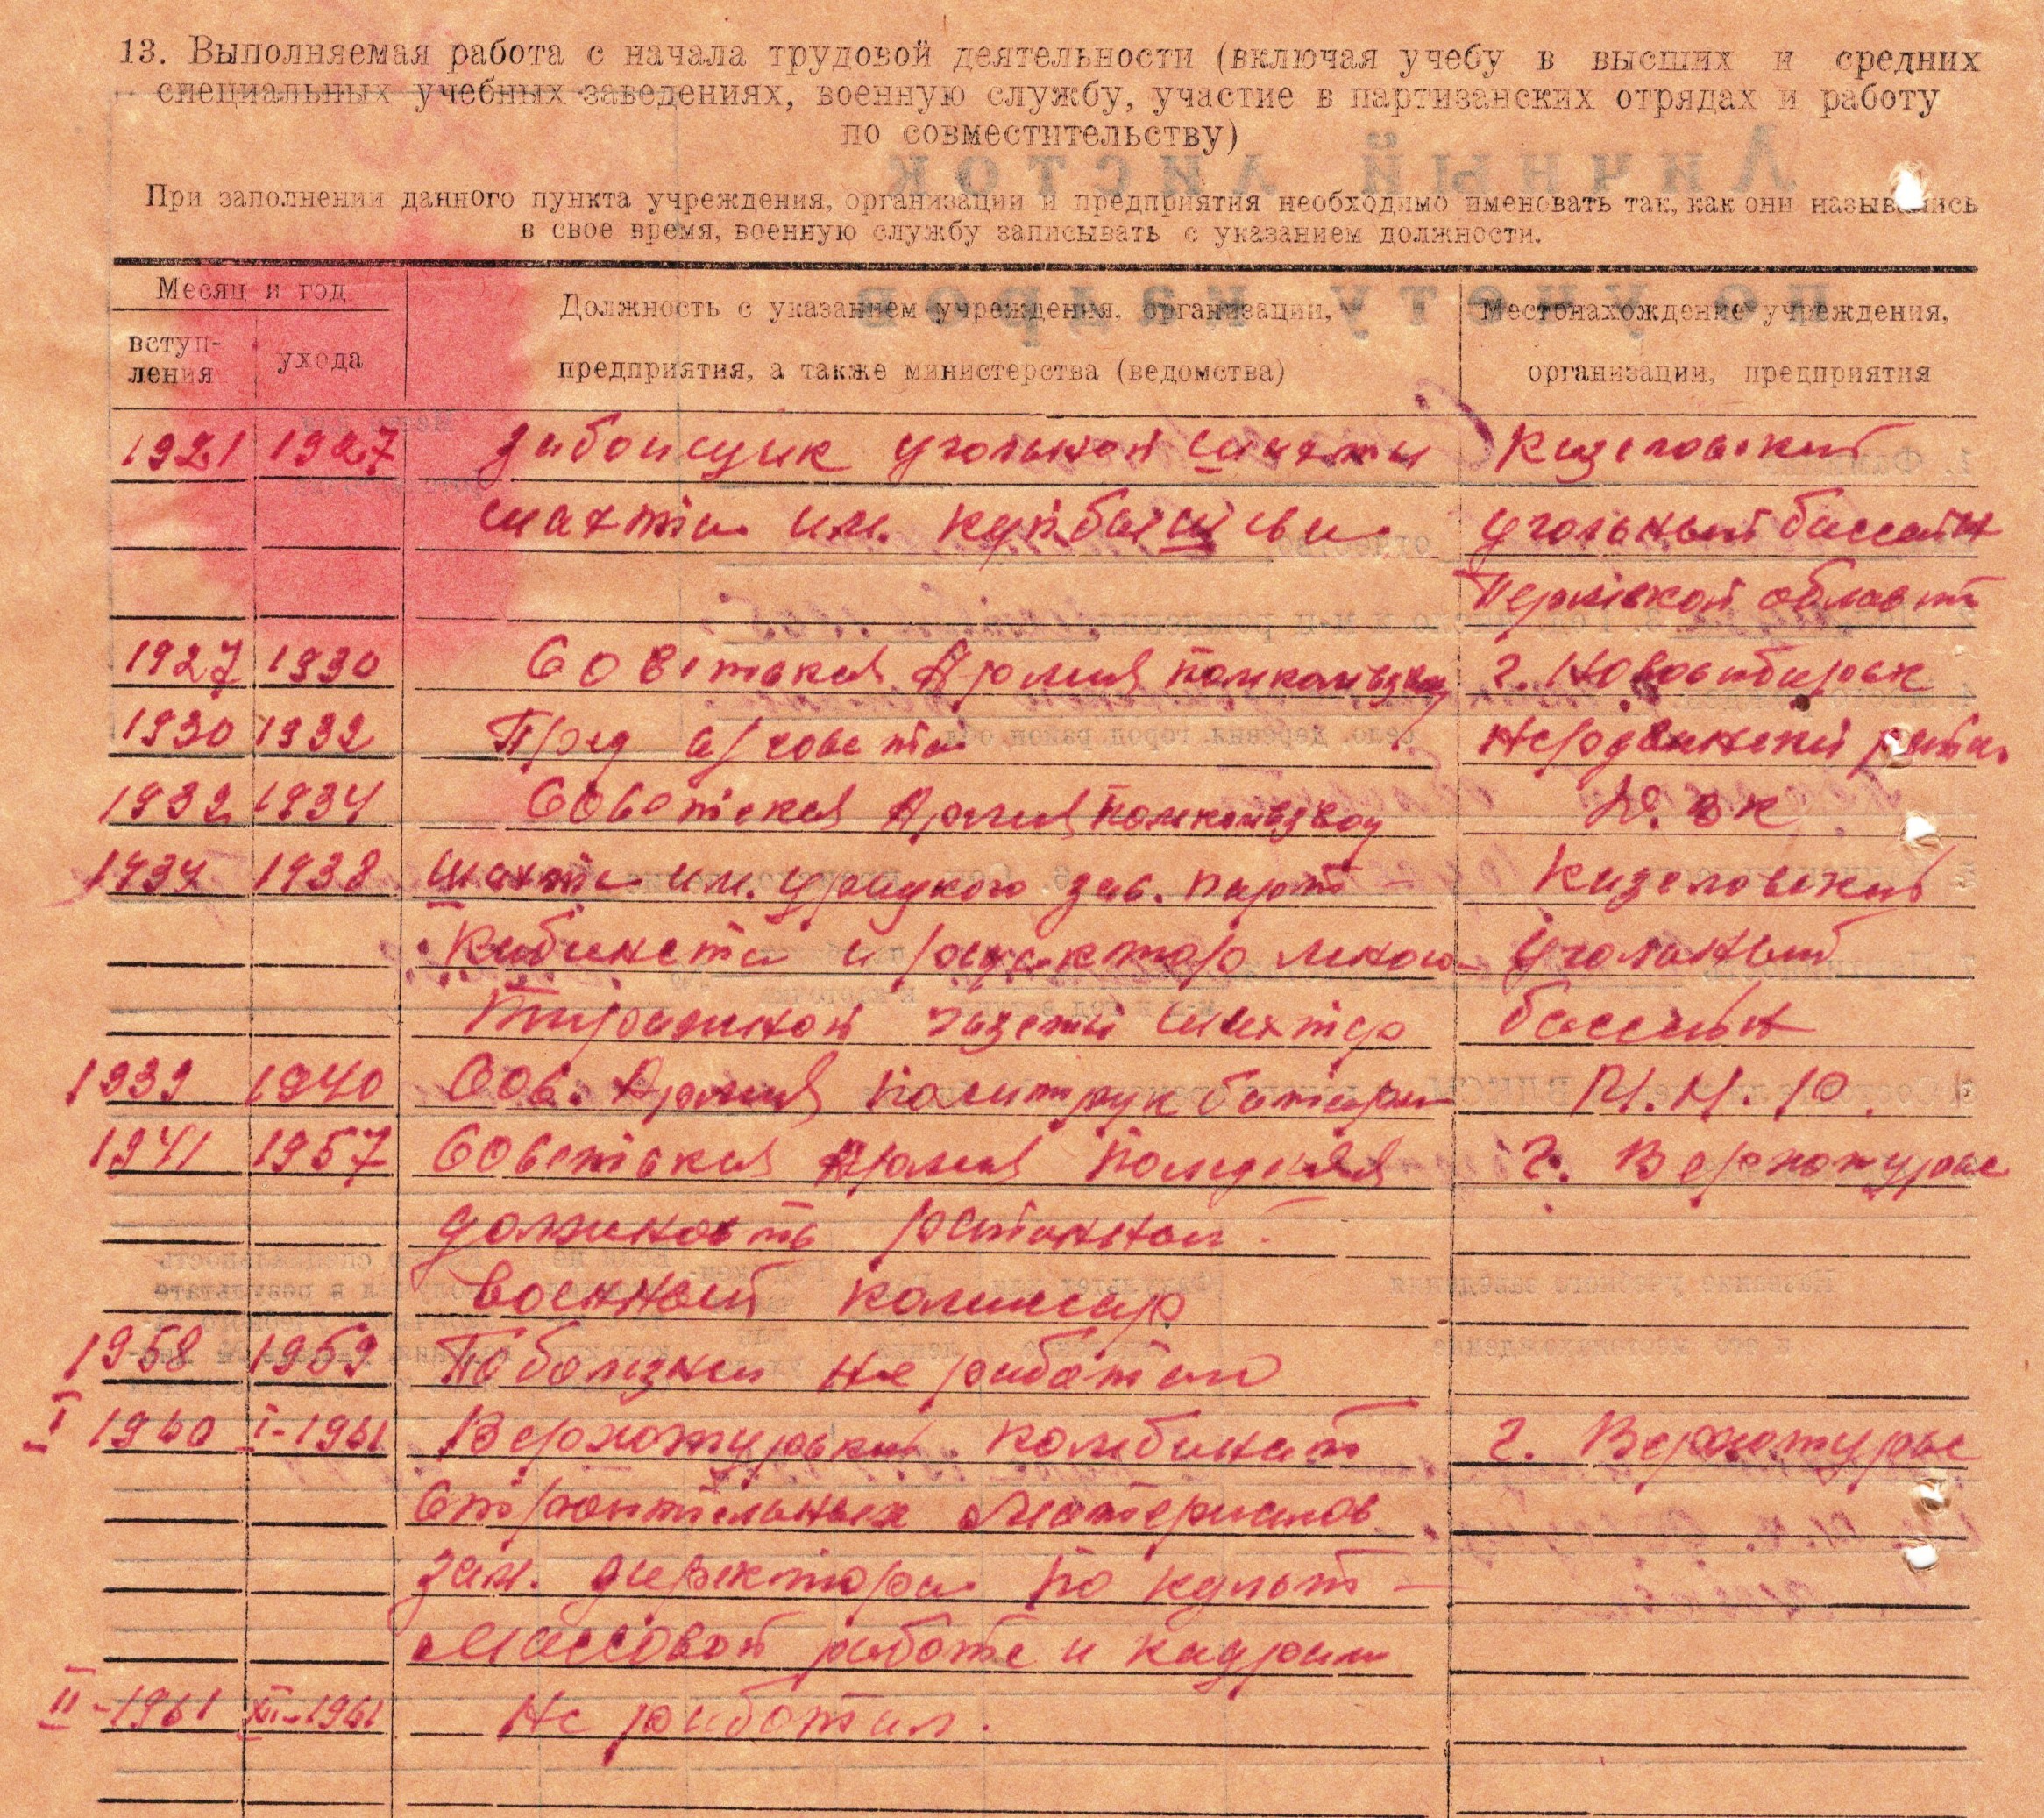 13. Выполняемая работа с начала трудовой деятельности (включая учебу в высших и средних
специальных учебных заведениях, военную службу, участие в партизанских отрядах и работу
по совместительству)
При заполнении данного пункта учреждения, организации и предприятия необходимо именовать так, как они назывались
в свое время, военную службу записывать с указанием должности.
Месяц и год
вступ-
ления
ухода
Должность с указанием учреждения, организации,
предприятия, а также министерства (ведомства)
Местонахождение учреждения,
организации, предприятия
1921 1927 Забойщик угольной шахты Кизеловский
шахта им. Куйбышева угольный бассейн
Пермской области
1927 1930 Советская Армия помкомвзвод г. Новосибирск
1930 1932 Пред Нердвинский район
1932 1934 Советская Армия помкомвзвод Д. вк
1934 1938 шахта им. Урицкого зав. парт- Кизеловский
кабинета и редактор много- угольный
тиражной газеты шахтер бассейн
1939 1940 Сов. Армия политрук батареи П.П.
1941 1957 Советская Армия последняя г. Верхотурье
должность районный
военный комиссар
1958 1959 По болезни не работал
I 1960 I-1961 Верхотурский комбинат г. Верхотурье
строительных материалов
зам. директора по культ-
массовой работе и кадрам
II-1961 XII-1961 Не работал.